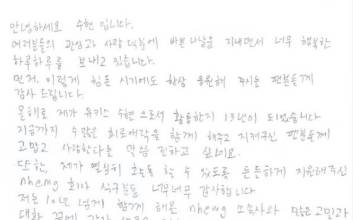 안녕하세요 수현 입니다.
여러분들의 관심과 사랑 덕분에 바쁜 나날을 지내면서 너무 행복한
하루하루를 보내고 있습니다.
먼저, 이렇게 힘든 시기에도 항상 응원해 주시는 팬분들께
감사 드립니다.
올해로 제가 유키스 수현 으로서 활동한지 13년이 되었습니다
지금까지 수많은 희로애락을 함께 해주고 지켜주신 팬분들께
고맙고 사랑한다는 말을 전하고 싶네요.
또한, 제가 열심히 활동 할 수 있도록 든든하게 지원해주신
nhemg 회사 식구분들 너무너무 감사합니다
저는 10년 넘게 함께 해온 nhemg 소속사와 많은 고민과
대화 끝에